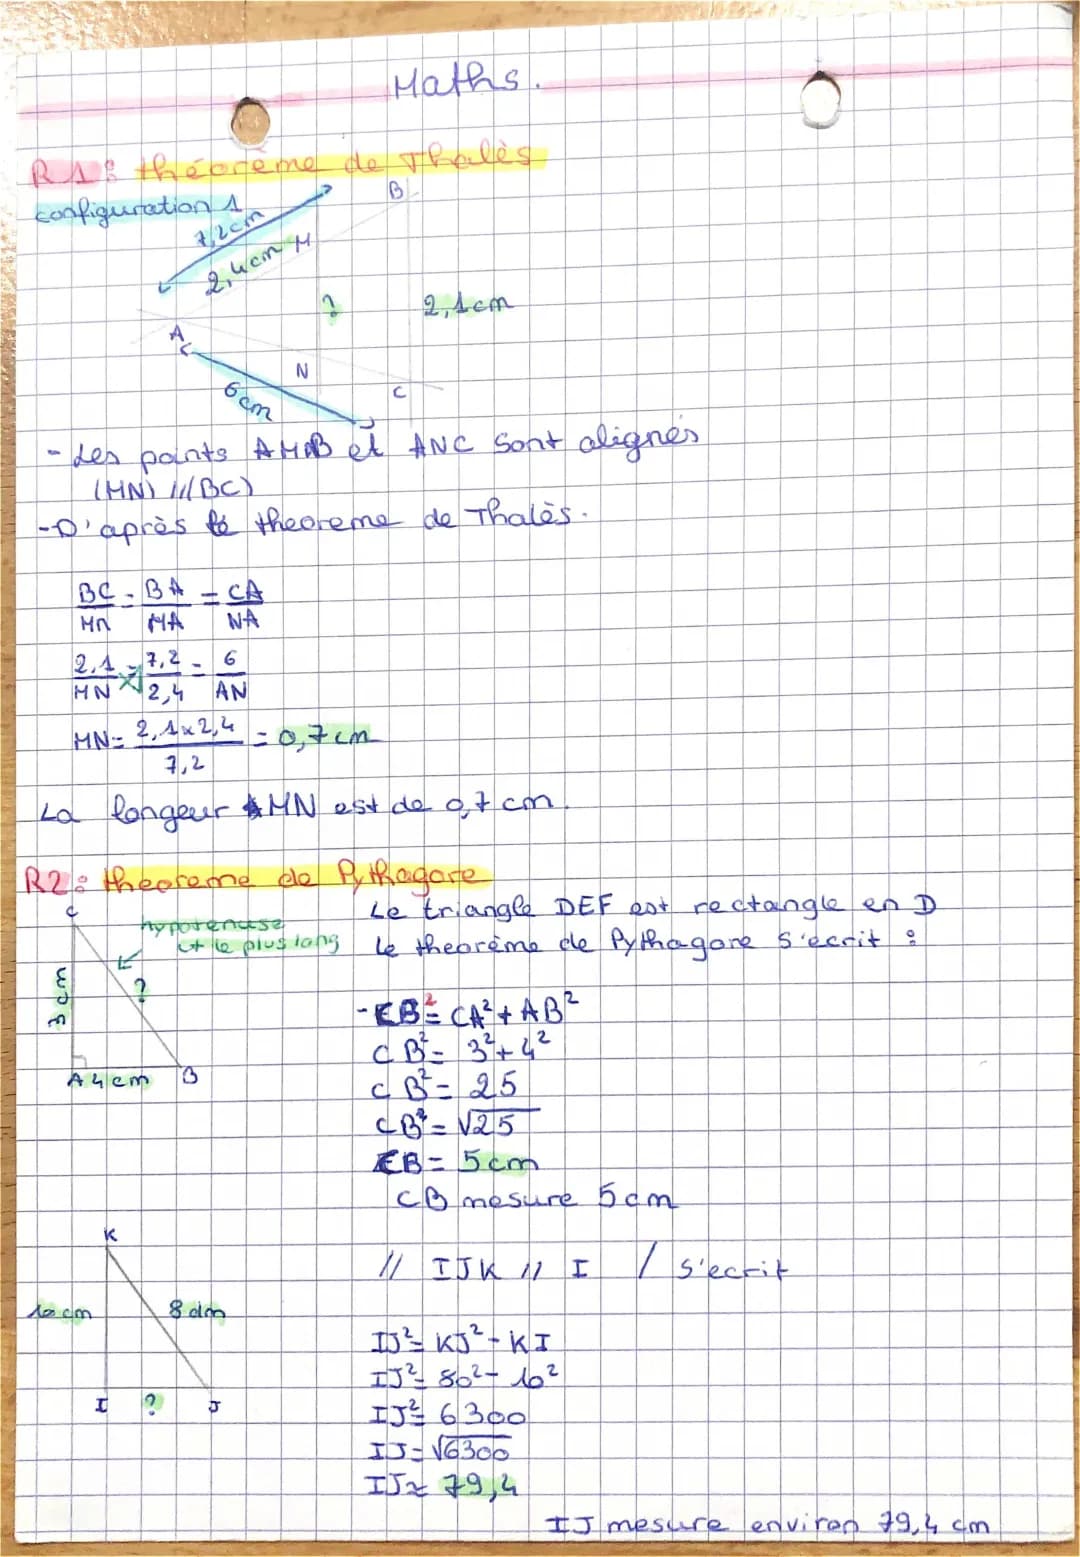 Maths.
R1: théorème de Thalès
configuration 1
B
7,2cm
2,4cm M
?
2,1cm
A
N
C
6cm
- Les points AMB et ANC sont alignés
(MN) // (BC)
- D'après le theoreme de Thalès.
BC = BA = CA
MN MA NA
2,1 = 7,2 = 6
MN 2,4 AN
MN = 2,1 x 2,4 = 0,7 cm
7,2
La longeur MN est de 0,7 cm.
R2: theoreme de Pythagore
C
hypotenuse
et le plus long
3 cm
?
A 4 cm B
Le triangle DEF est rectangle en D
Le theorème de Pythagore s'ecrit :
- CB² = CA² + AB²
CB² = 3² + 4²
CB² = 25
CB² = √25
CB = 5 cm
CB mesure 5 cm
K
10 cm
8 dm
I ? J
// IJK // I / s'ecrit
IJ² = KJ² - KI
IJ² = 80² - 10²
IJ² = 6300
IJ = √6300
IJ ≈ 79,4
IJ mesure environ 79,4 cm